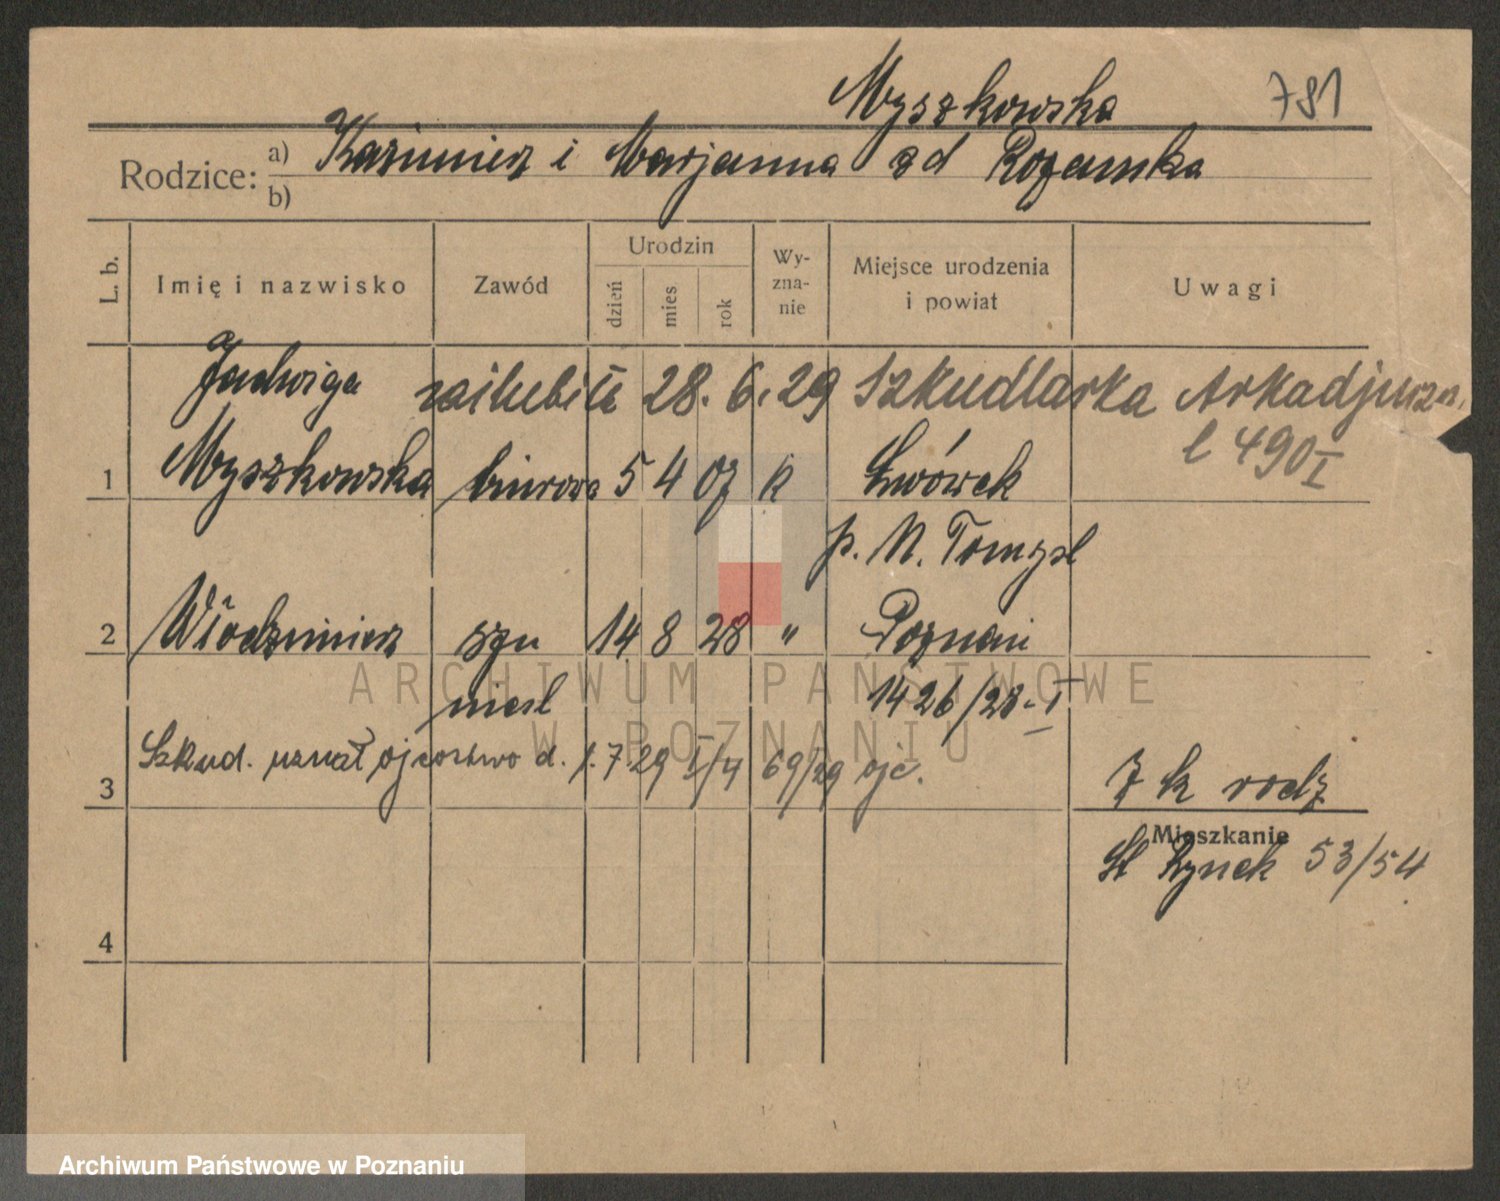 Myszkowska 781
Rodzice: a) Kazimierz i Marjanna zd
b)
L. b. Imię i nazwisko Zawód Urodzin dzień mies rok Wyznanie Miejsce urodzenia i powiat Uwagi
Jadwiga zaślubiła 28. 6. 29 Szkudlarka Arkadjusza,
l 490 I
1 Myszkowska biurowa 5 4 07 k Lwówek
p. N. Tomysl
2 Włodzimierz syn 14 8 28 " Poznań
niesl 1426/28. I
3 Szkud. uznał ojcostwo d. 1. 7 29 I/4 69/29 ojc. 7 k rodz
Mieszkanie
St Rynek 53/54
4
ARCHIWUM PAŃSTWOWE
W POZNANIU
Archiwum Państwowe w Poznaniu